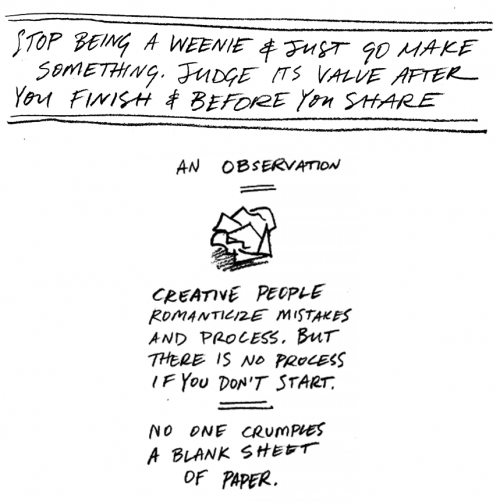 STOP BEING A WEENIE & JUST GO MAKE
SOMETHING. JUDGE ITS VALUE AFTER
YOU FINISH & BEFORE YOU SHARE
AN OBSERVATION
CREATIVE PEOPLE
ROMANTICIZE MISTAKES
AND PROCESS. BUT
THERE IS NO PROCESS
IF YOU DON'T START.
NO ONE CRUMPLES
A BLANK SHEET
OF PAPER.